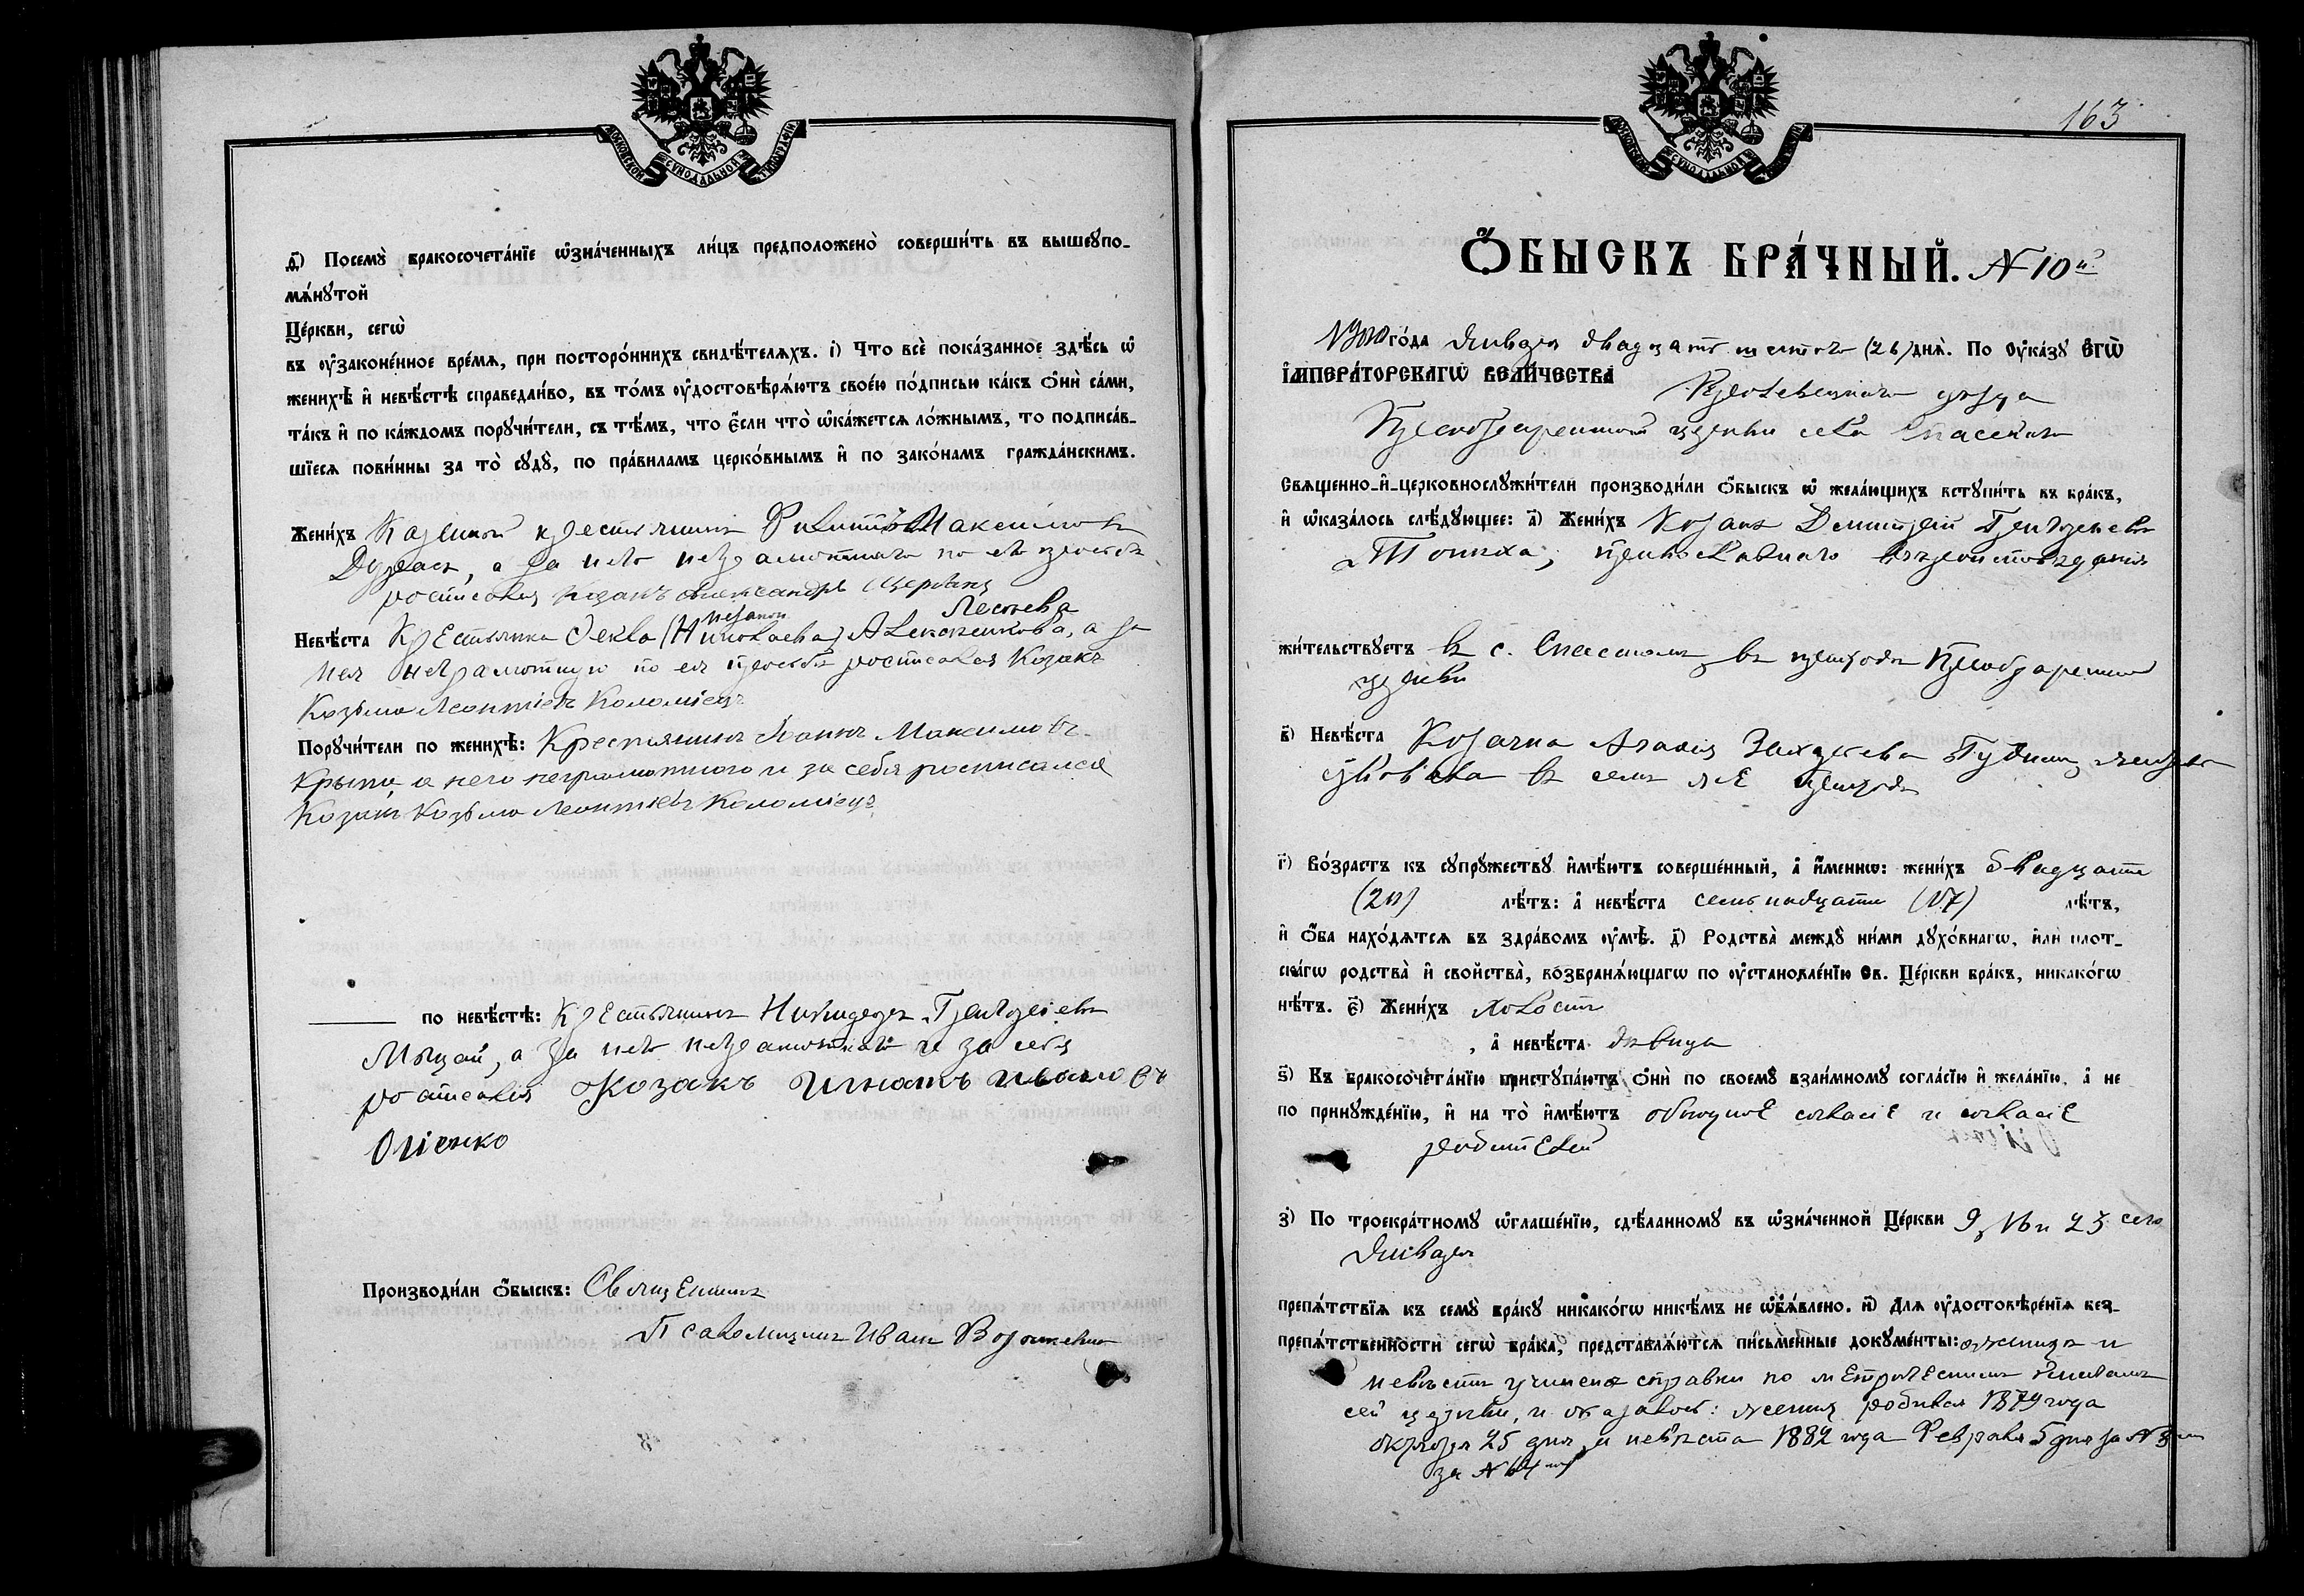 МОСКОВСКОЙ СѴНОДАЛЬНОЙ ТИПОГРАФІИ
д҃) Посемꙋ̀ вракосочета́нїе ѡ҆зна́ченныхъ ли́цъ предположено̀ соверши́ть въ вышеꙋпо-
мѧ́нꙋтой
Це́ркви, сегѡ̀
въ ᲂу҆законе́нное вре́мѧ, при посторо́ннихъ свидѣ́телѧхъ. і҃) Что всѐ пока́занное здѣ́сь ѡ҆
женихѣ̀ и҆ невѣ́стѣ справедли́во, въ то́мъ ᲂу҆достовѣрѧ́ютъ свое́ю по́дписью ка́къ ѻ҆нѝ са́ми,
та́къ и҆ по ка́ждомъ порꙋчи́тели, съ тѣ́мъ, что є҆́сли что̀ ѡ҆ка́жется ло́жнымъ, то подписа́в-
шїеся пови́нны за то̀ сꙋдꙋ̀, по пра́виламъ церко́внымъ и҆ по зако́намъ гражда́нскимъ.
Жени́хъ Казенный крестьянинъ Филиппъ Максимовъ
а за него неграмотнаго по его просьбѣ
росписался козакъ Александръ
Невѣ́ста Крестьянка Ѳекла (Николаева) а за
нея неграмотную по ея просьбѣ росписался Козакъ
Козьма Леонтіевъ Коломіецъ
Порꙋчи́тели по женихѣ̀: Крестьянинъ Іоаннъ Максимовъ
Крыпа, а него неграмотного и за себя росписался
Козакъ Козьма Леонтіевъ Коломіецъ
по невѣ́стѣ: Крестьянинъ Никифоръ Григоріевъ
Мыцай, а за него неграмотнаго и за себя
росписался Козакъ Игнатъ Ивановъ
Олієнко
Производи́ли ѻ҆́быскъ: Священникъ
Псаломщикъ Иванъ
МОСКОВСКОЙ СѴНОДАЛЬНОЙ ТИПОГРАФІИ
163
Ѻ҆́БЫСКЪ БРА́ЧНЫЙ. N 10й
1900 го́да Января двадцать шестого (26) днѧ̀. По ᲂу҆ка́зꙋ Є҆гѡ̀
І҆мпера́торскагѡ вели́чества Кролевецкаго уѣзда
Преображенской церкви села Спаскаго
Свѧщенно-и҆-церковнослꙋжи́тели производи́ли ѻ҆́быскъ ѡ҆ жела́ющихъ встꙋпи́ть въ бра́къ,
и҆ ѡ҆каза́лось слѣ́дꙋющее: а҃) Жени́хъ Козакъ Димитрій Григорьевъ
Топиха, православнаго вѣроисповѣданія
жи́тельствꙋетъ въ с. Спаскомъ въ приходѣ Преображенской
церкви
в҃) Невѣ́ста Козачка Агафія Захарьева
въ семъ же приходѣ
г҃) Во́зрастъ къ сꙋпрꙋ́жествꙋ и҆мѣ́ютъ соверше́нный, а҆ и҆́меннѡ: жени́хъ двадцати
(20) лѣ́тъ: а҆ невѣ́ста семнадцати (17) лѣ́тъ,
и҆ ѻ҆́ба нахо́дѧтсѧ въ здра́вомъ ᲂу҆мѣ̀. д҃) Родства̀ междꙋ̀ ни́ми дꙋхо́внагѡ, и҆лѝ плот-
ска́гѡ родства̀ и҆ сво́йства, возбранѧ́ющагѡ по ᲂу҆становле́нїю Св. Це́ркви бра́къ, никако́гѡ
нѣ́тъ. є҃) Жени́хъ холостъ
, а҆ невѣ́ста дѣвица
ѕ҃) Къ бракосочета́нїю пристꙋпа́ютъ ѻ҆нѝ по своемꙋ̀ взаи́мномꙋ согла́сїю и҆ жела́нїю, а҆ не
по принꙋжде́нїю, и҆ на то̀ и҆мѣ́ютъ обоюдное согласіе и согласіе
родителей
з҃) По троекра́тномꙋ ѡ҆глаше́нїю, сдѣ́ланномꙋ въ ѡ҆зна́ченной Це́ркви 9, 16 и 23 сего
Января
препѧ́тствїѧ къ семꙋ̀ бра́кꙋ никако́гѡ никѣ́мъ не ѡ҆б̾ѧ́влено. и҃) Длѧ ᲂу҆достовѣре́нїѧ без-
препѧ́тственности сегѡ̀ бра́ка, представлѧ́ютсѧ пи́сьменные докꙋме́нты: о женихѣ и
невѣстѣ учинена справки по метрическимъ книгамъ
сей церкви, и оказалось: женихъ родился 1879 года
октября 25 дня, и невѣста 1882 года Февраля 5 дня за N 8
за N 64